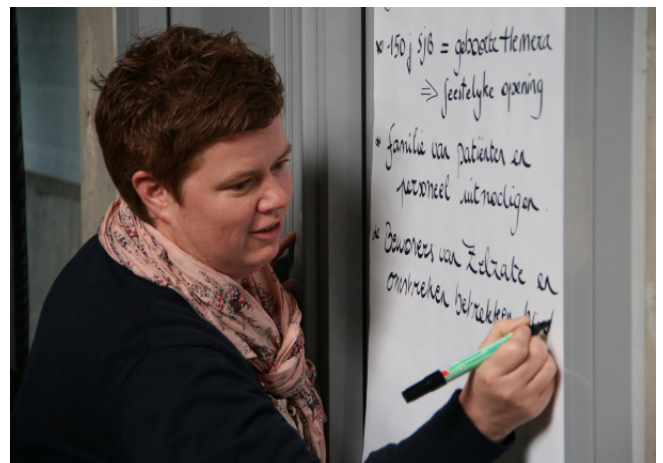 * 150 j SJB = geboorte Hemera
=> feestelyke opening
* familie van patiënten en
personeel uitnodigen.
* Bewoners van Zelzate en
omstreken betrekken